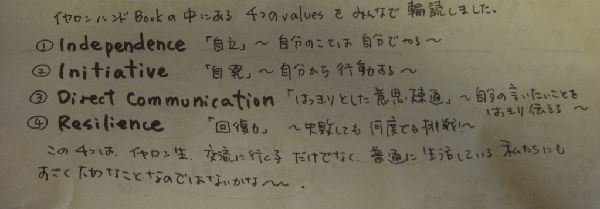 イセロンハンドBookの中にある 4つのvaluesをみんなで輪読しました。
① Independence 「自立」 ~ 自分のことは自分でやる ~
② Initiative 「自発」 ~ 自分から行動する ~
③ Direct Communication 「はっきりとした意思疎通」 ~ 自分の言いたいことを
はっきり伝える ~
④ Resilience 「回復力」 ~ 失敗しても何度でも挑戦 ~
この4つは、イセロン生 交流に行くだけでなく、普通に生活している私たちにも
すごく大切なことなのではないかな~。